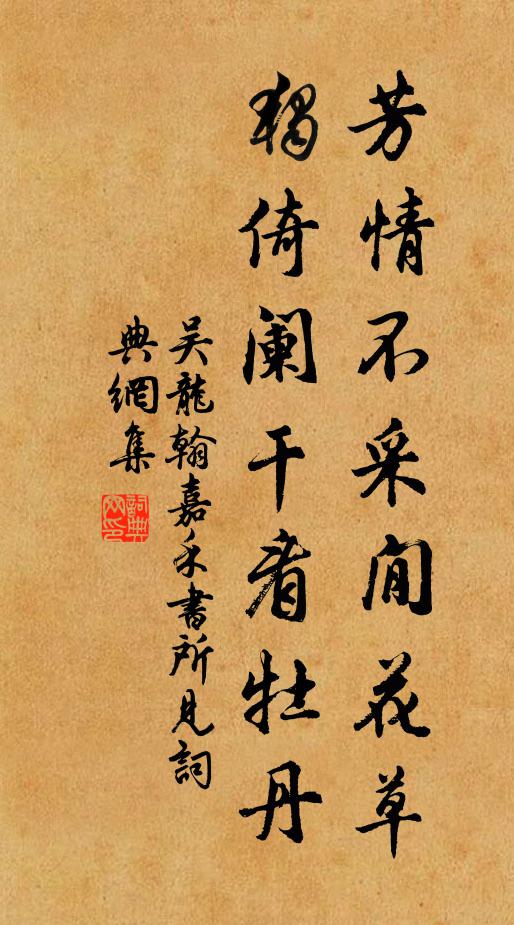 芳情不采閒花草
獨倚闌干看牡丹
吴龍翰嘉禾書所見詞
典網集
詞典网印